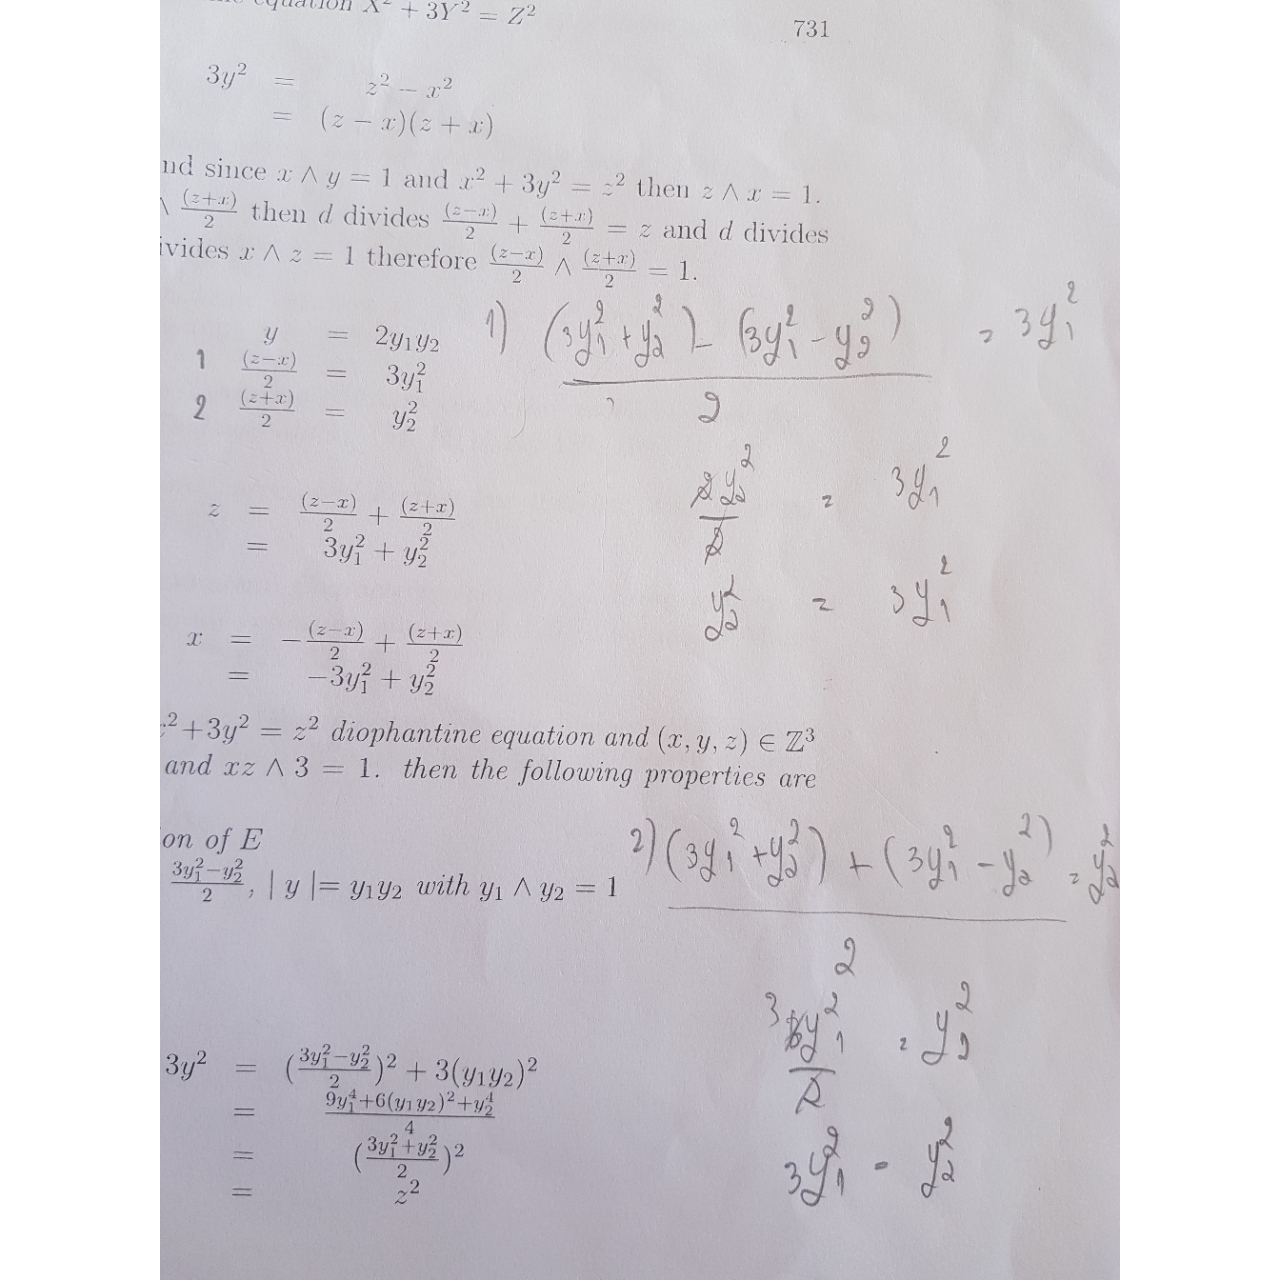 equation X² + 3Y² = Z²
731
3y² = z² − x²
= (z − x)(z + x)
nd since x ∧ y = 1 and x² + 3y² = z² then z ∧ x = 1.
∧ (z+x)/2 then d divides (z−x)/2 + (z+x)/2 = z and d divides
ivides x ∧ z = 1 therefore (z−x)/2 ∧ (z+x)/2 = 1.
y = 2y₁y₂
1 (z−x)/2 = 3y₁²
2 (z+x)/2 = y₂²
1) ((3y₁² + y₂²) − (3y₁² − y₂²))/2 = 3y₁²
2y₂²/2 = 3y₁²
y₂² = 3y₁²
z = (z−x)/2 + (z+x)/2
= 3y₁² + y₂²
x = −(z−x)/2 + (z+x)/2
= −3y₁² + y₂²
² + 3y² = z² diophantine equation and (x, y, z) ∈ ℤ³
and xz ∧ 3 = 1. then the following properties are
on of E
(3y₁²−y₂²)/2, | y |= y₁y₂ with y₁ ∧ y₂ = 1
2) ((3y₁² + y₂²) + (3y₁² − y₂²))/2 = y₂²
3 6y₁²/2 = y₂²
3y₁² = y₂²
3y² = ((3y₁²−y₂²)/2)² + 3(y₁y₂)²
= (9y₁⁴+6(y₁y₂)²+y₂⁴)/4
= ((3y₁²+y₂²)/2)²
= z²